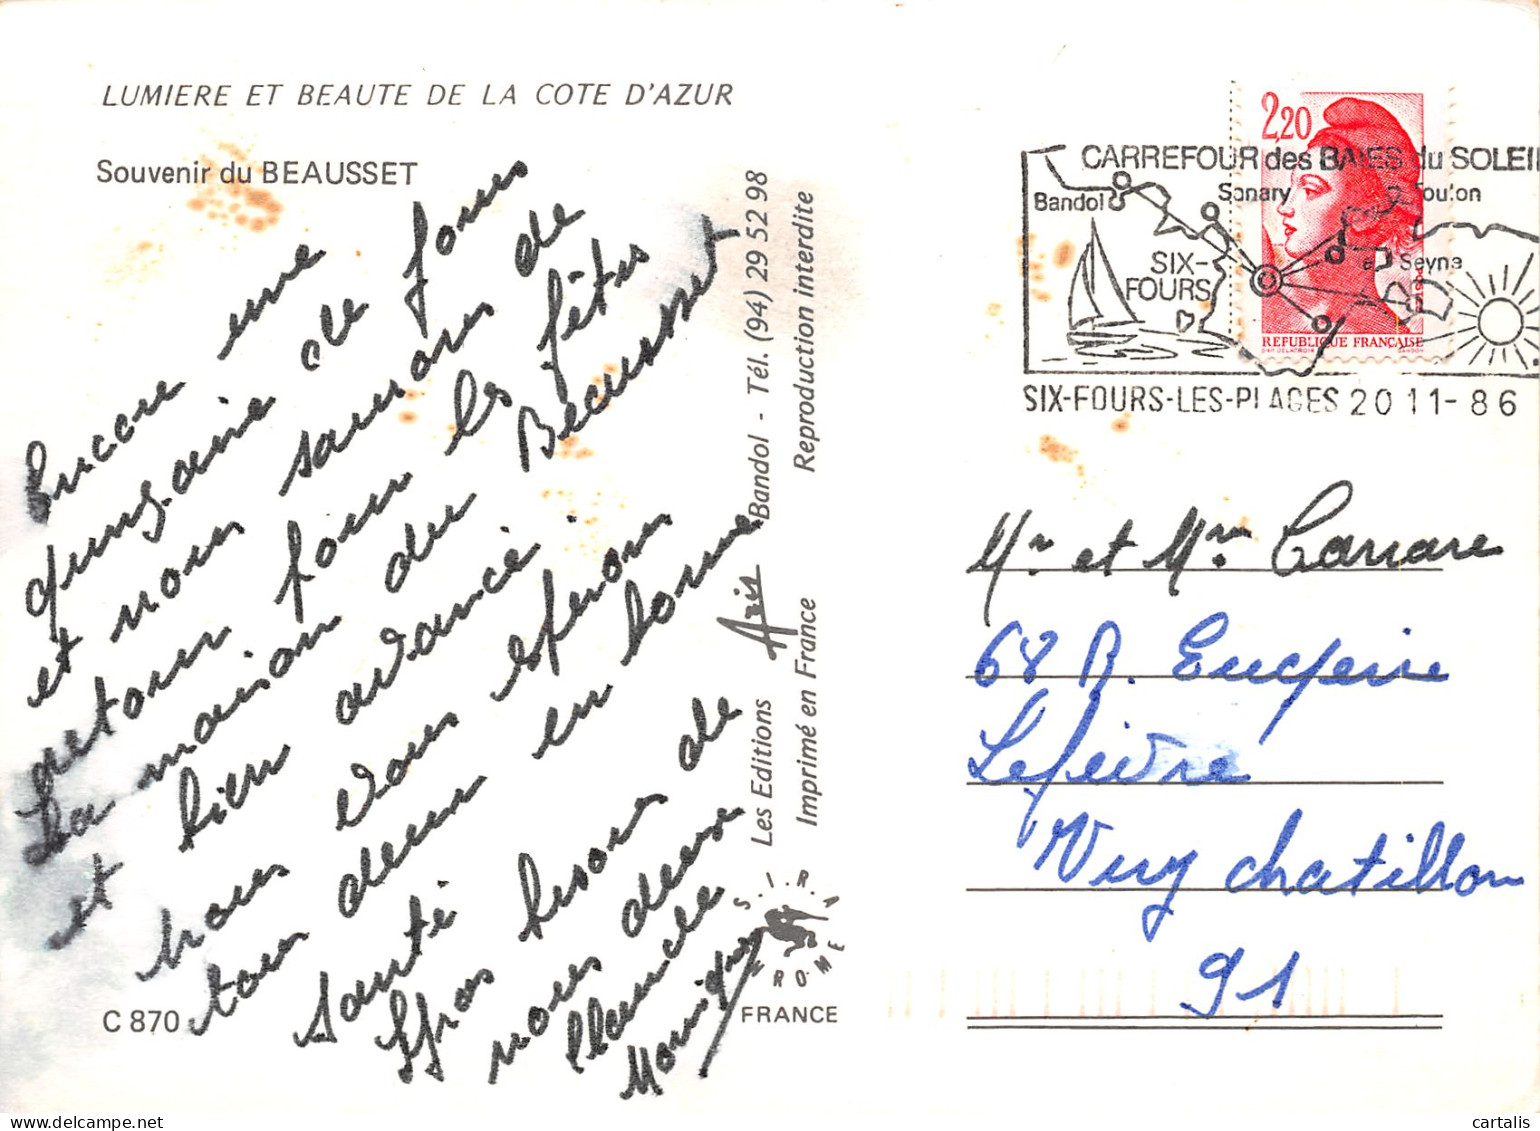 LUMIERE ET BEAUTE DE LA COTE D'AZUR
Souvenir du BEAUSSET
Encore une
quinzaine de jours
et nous saurons de
retour pour les fêtes
La maison du Beausset
et bien avancé.
nous vous espérons
tous deux en bonne
santé
Gros bisous de
nous deux
Claude
Monique
C 870
Les Editions Aris Bandol - Tél. (94) 29 52 98
Imprimé en France Reproduction interdite
S.I.R.A
ROME
FRANCE
2,20
REPUBLIQUE FRANÇAISE
CARREFOUR des BAIES du SOLEIL
Bandol
Sanary
Toulon
SIX-
FOURS
La Seyne
SIX-FOURS-LES-PLAGES 20 11-86
Mr et Mm Carrare
68 R. Eugenie
Lefèvre
Viry chatillon
91
cartalis